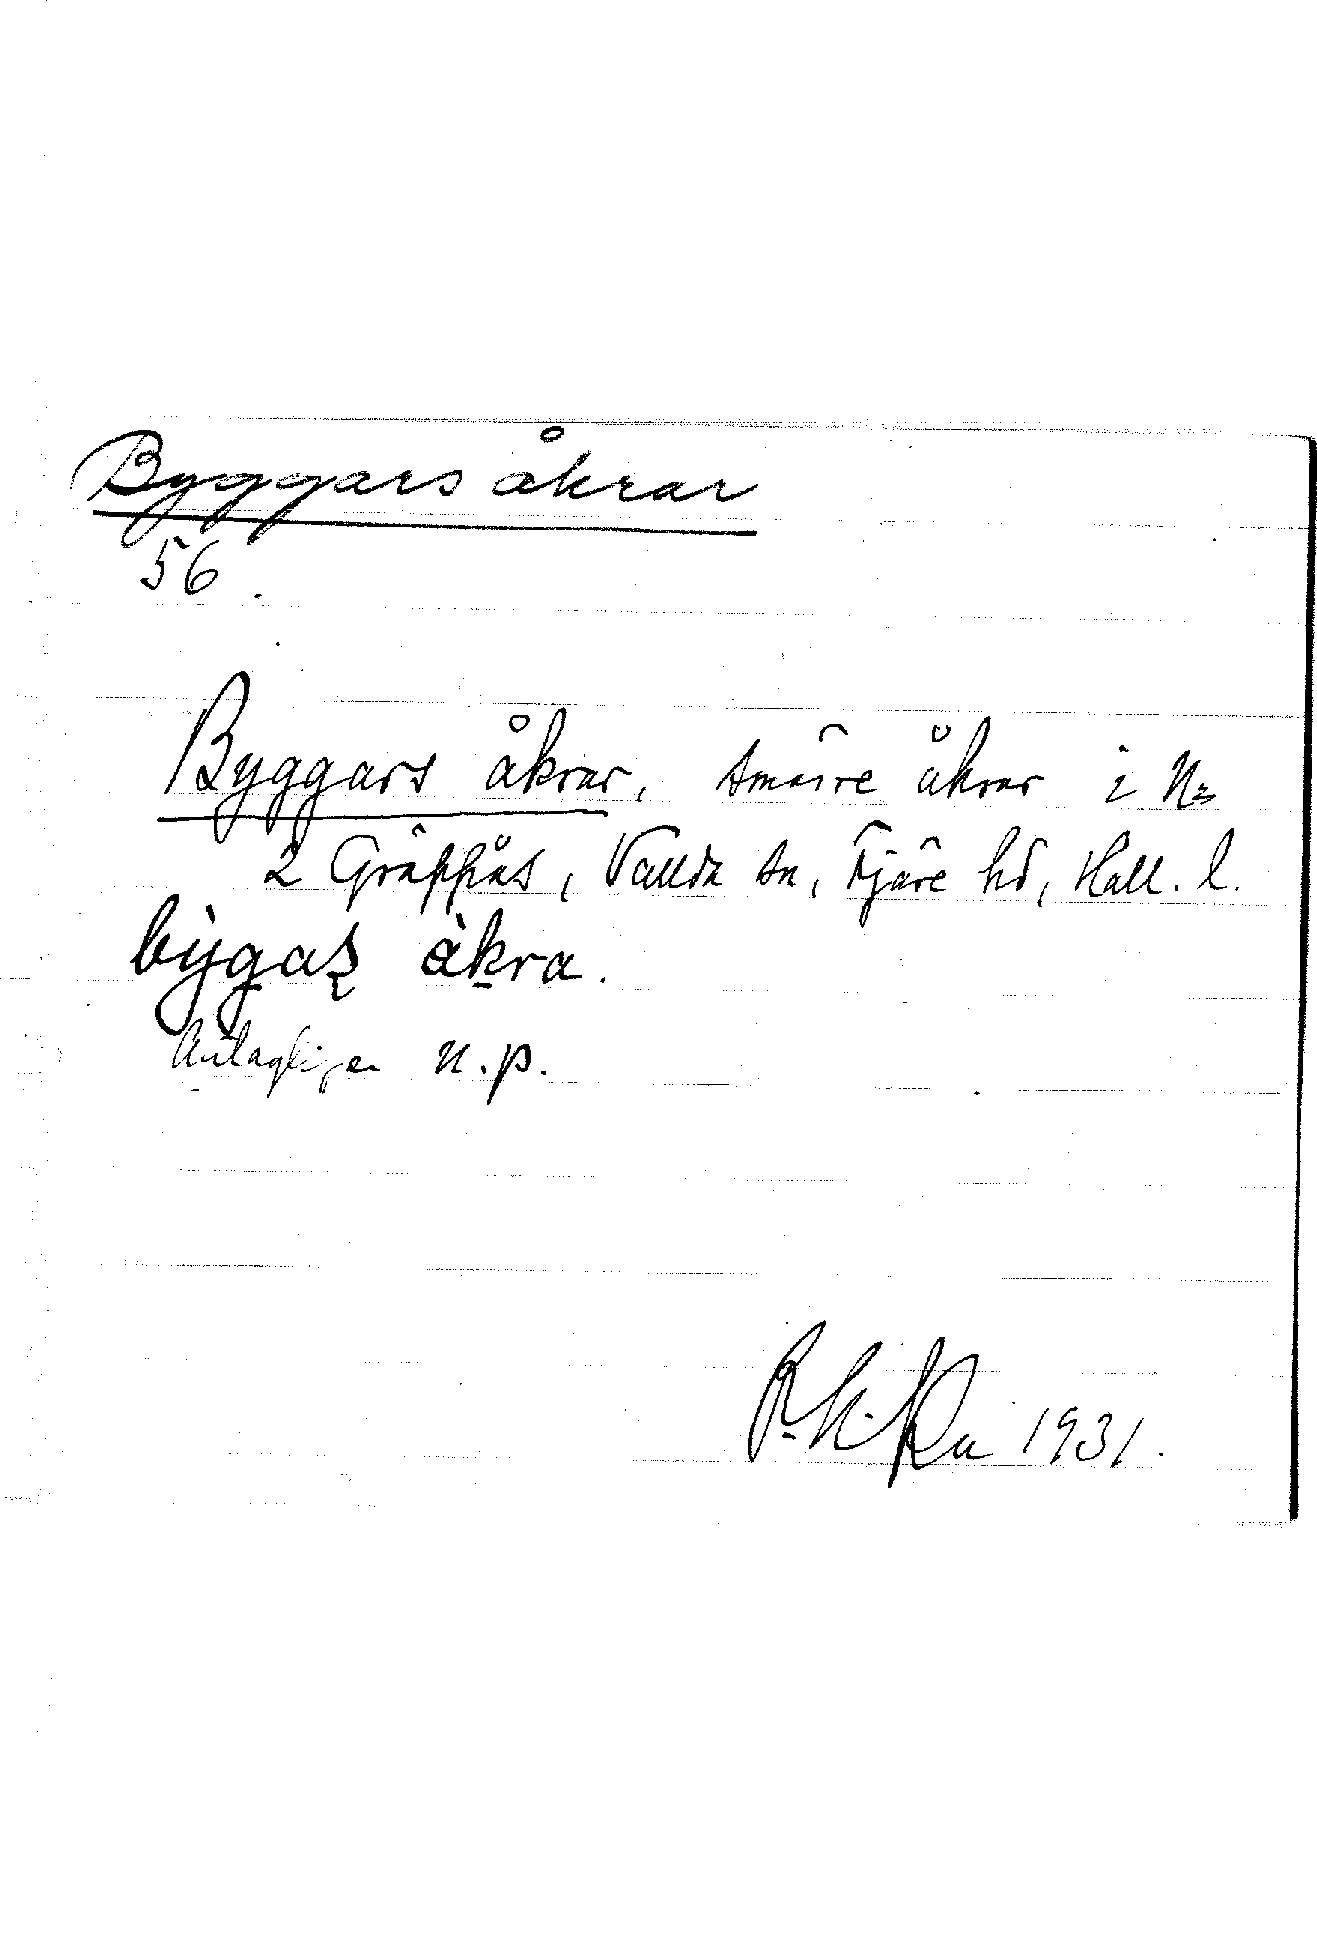 Byggars åkrar
56
Byggars åkrar, smärre åkrar i N:r
2 Gräppås, Vallda sn, Fjäre hd, Hall. l.
åkra.
Antagligen n.p.
1931.